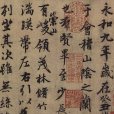 永和九年歲在癸
于會稽山陰之蘭
也羣賢畢至少長
崇山
有峻領茂林脩
湍暎帶左右引以
列坐其次雖無絲